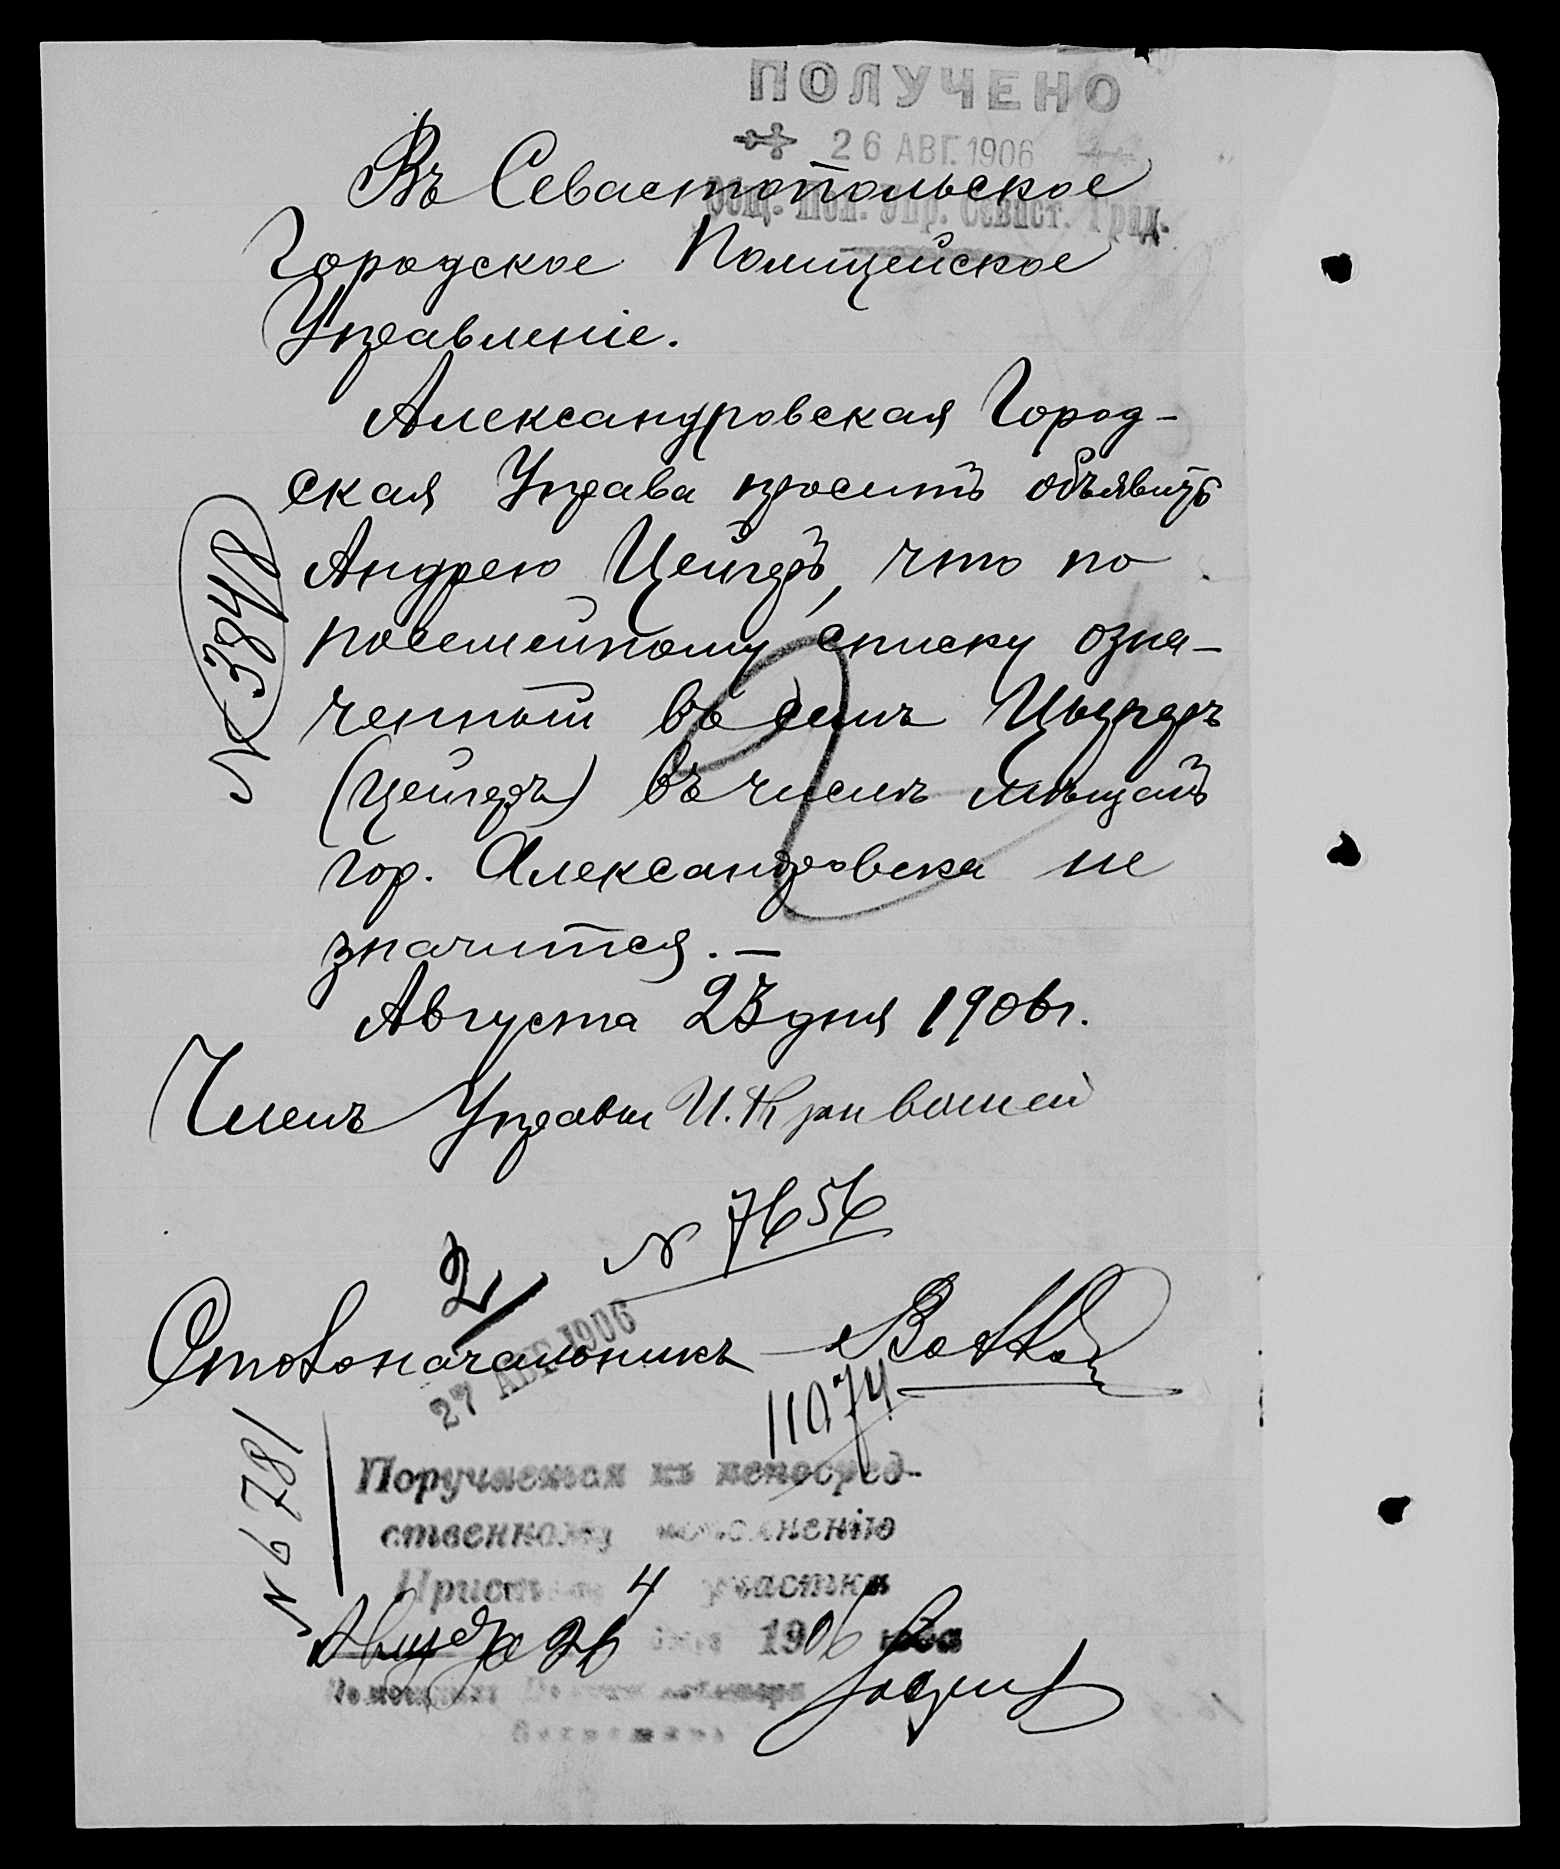 ПОЛУЧЕНО
26 АВГ. 1906
Общ. Пол. Упр. Севаст. Град.
Въ Севастопольское
Городское Полицейское
Управленіе.
Александровская Город-
ская Управа проситъ объявить
Андрею Цейгеръ, что по
посемейному списку озна-
ченный въ семъ
(Цейгеръ) въ числѣ мѣщанъ
гор. Александровска не
значится. —
Августа 23 дня 1906 г.
Членъ Управы И.
№ 3848
№ 7656
2
Столоначальникъ
27 АВГ. 1906
11074
№ 6781
Поручается къ непосред-
ственному исполненію
Пристава 4 участка
Августа 26 дня 1906 года